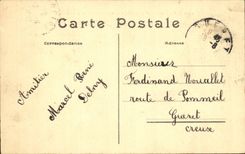 Carte Postale
Correspondance
Adresse
Amitiés
Marcel René
Monsieur
Ferdinand
route de Pommeil
Guéret
Creuse